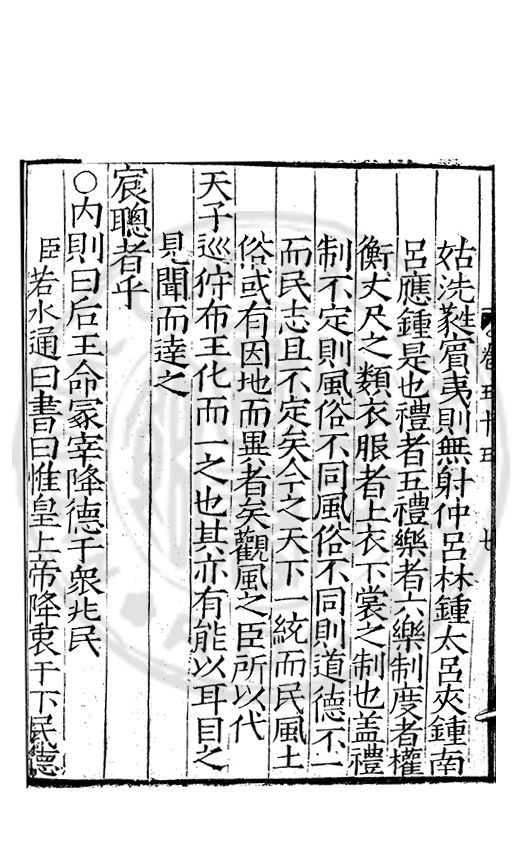 姑洗蕤賓夷則無射仲呂林鍾太呂夾鍾南
呂應鍾是也禮者五禮樂者六樂制度者權
衡丈尺之類衣服者上衣下裳之制也盖禮
制不定則風俗不同風俗不同則道德不一
而民志且不定矣今之天下一統而民風土
俗或有因地而異者矣觀風之臣所以代
天子巡狩布王化而一之也其亦有能以耳目之
見聞而達之
宸聰者乎
○内則曰后王命冢宰降德于衆兆民
臣若水通曰書曰惟皇上帝降衷于下民德
卷五十五
七